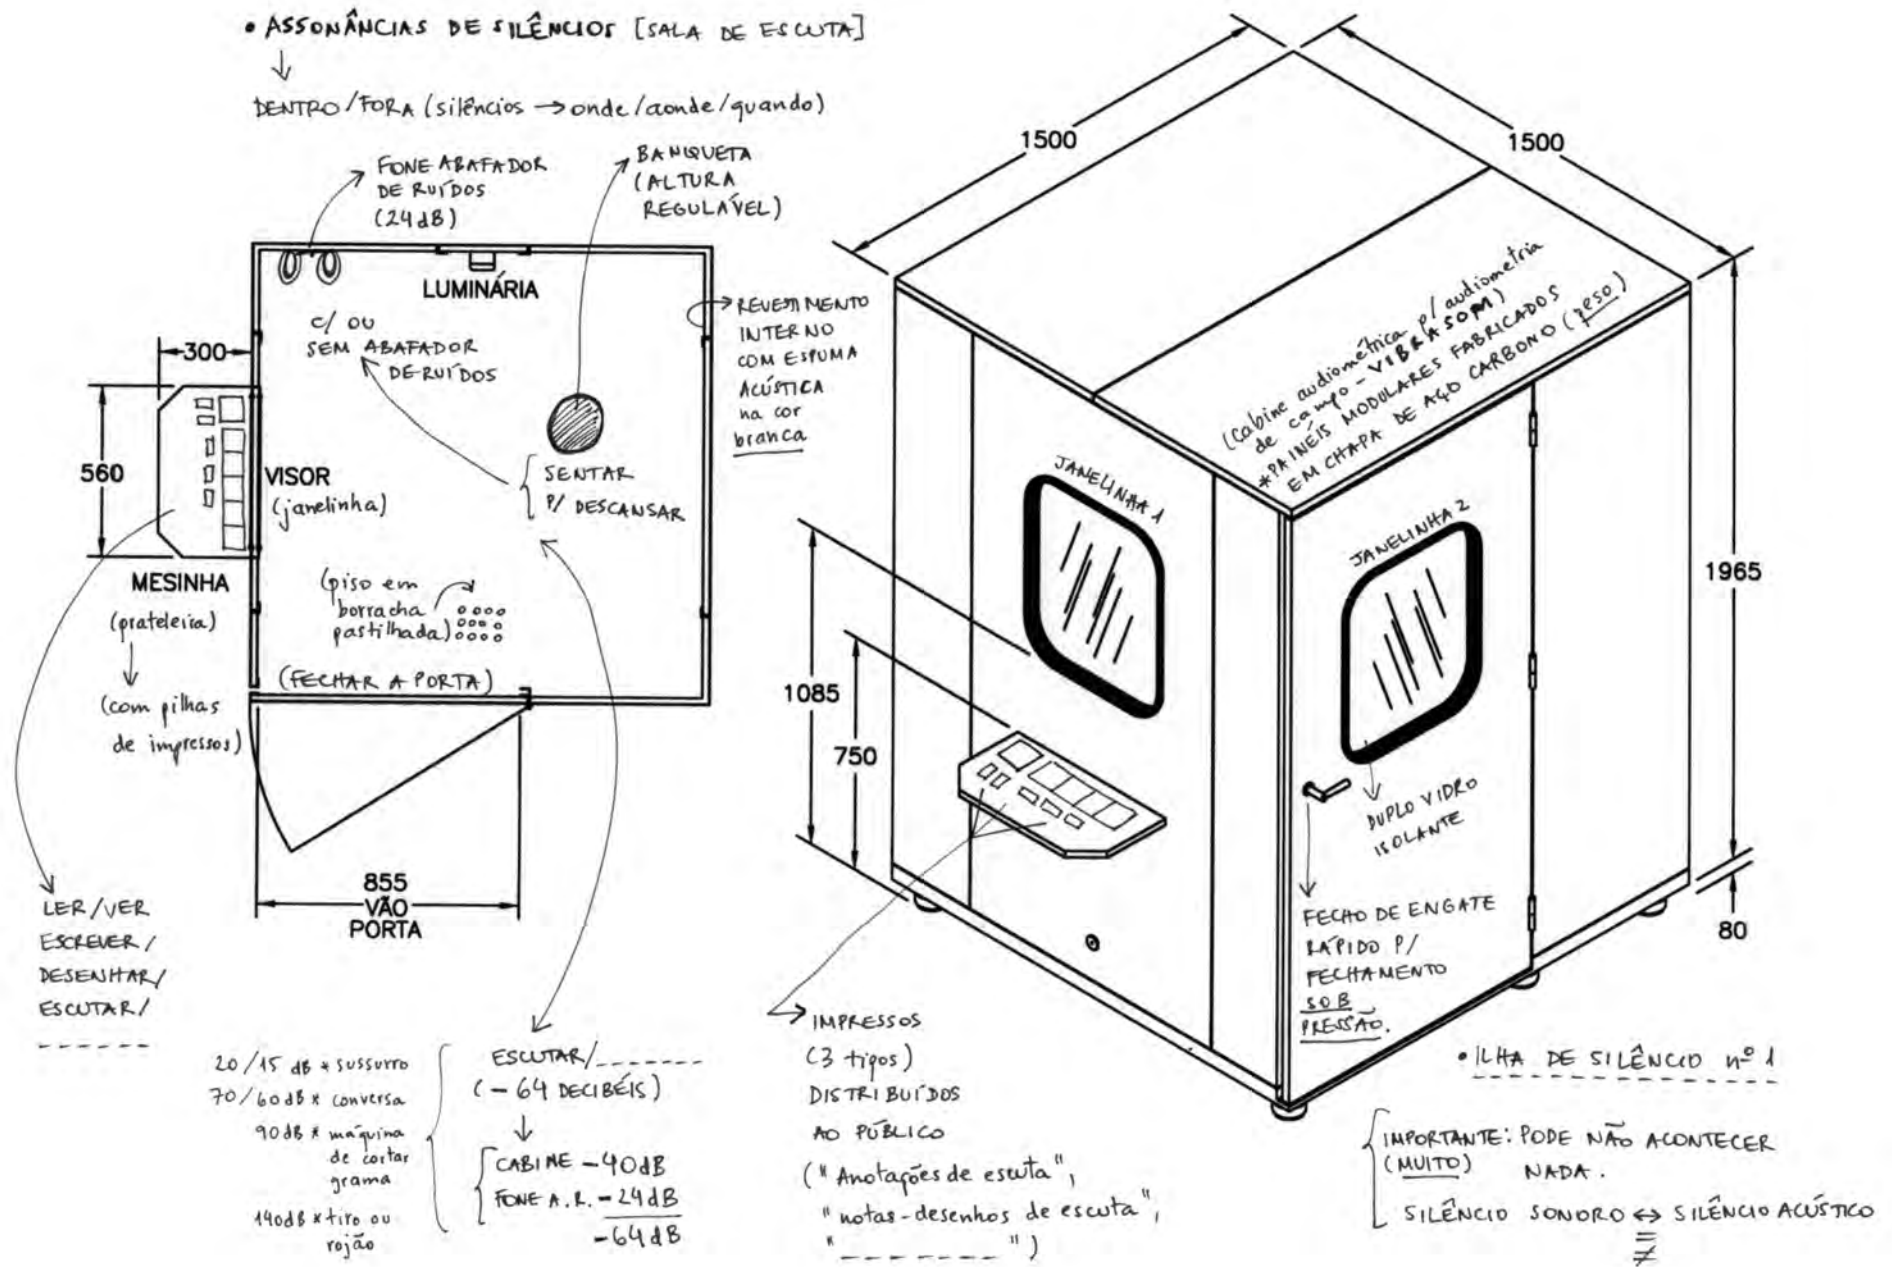 • ASSONÂNCIAS DE SILÊNCIOS [SALA DE ESCUTA]
↓
DENTRO/FORA (silêncios → onde/aonde/quando)
FONE ABAFADOR
DE RUÍDOS
(24dB)
BANQUETA
(ALTURA
REGULÁVEL)
LUMINÁRIA
C/ OU
SEM ABAFADOR
DE RUÍDOS
REVESTIMENTO
INTERNO
COM ESPUMA
ACÚSTICA
na cor
branca
300
560
VISOR
(janelinha)
SENTAR
P/ DESCANSAR
MESINHA
(prateleira)
(com pilhas
de impressos)
(piso em
borracha
pastilhada)
(FECHAR A PORTA)
855
VÃO
PORTA
LER/VER
ESCREVER/
DESENHAR/
ESCUTAR/
------
20/15 dB * sussurro
70/60dB * conversa
90dB * máquina
de cortar
grama
140dB * tiro ou
rojão
ESCUTAR/------
(-64 DECIBÉIS)
↓
CABINE -40dB
FONE A.R. -24dB
-64dB
1500
1500
(Cabine audiométrica p/ audiometria
de campo - VIBRASOM)
*PAINÉIS MODULARES FABRICADOS
EM CHAPA DE AÇO CARBONO (peso)
JANELINHA 1
JANELINHA 2
1965
1085
750
80
DUPLO VIDRO
ISOLANTE
FECHO DE ENGATE
RÁPIDO P/
FECHAMENTO
SOB
PRESSÃO.
IMPRESSOS
(3 tipos)
DISTRIBUÍDOS
AO PÚBLICO
("Anotações de escuta",
"notas-desenhos de escuta",
"--------")
• ILHA DE SILÊNCIO nº 1
IMPORTANTE: PODE NÃO ACONTECER
(MUITO) NADA.
SILÊNCIO SONORO ↔ SILÊNCIO ACÚSTICO
=
≠